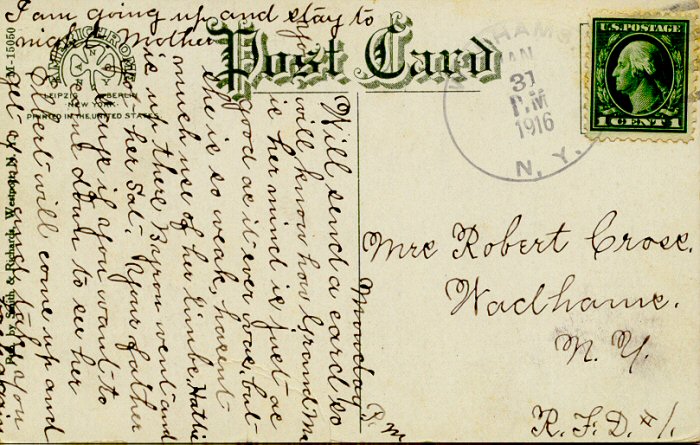 Post Card
AMERICHROME
LEIPZIG BERLIN
NEW YORK
PRINTED IN THE UNITED STATES
Pub. by Smith & Richards, Westport N. Y.
M-15050
HAMS,
JAN
31
P.M
1916
N. Y.
U.S. POSTAGE
1 CENT 1
Mrs Robert Cross.
Wadhams.
N. Y.
R. F. D. #1.
Monday P. M
Will send a card so
you will know how Grand Ma
is her mind is just as
good as it ever was, but
she is so weak, havent
much use of her limbs, Hattie
is up there Byron went and
her Sat. Your father
says if you want to
come down to see her
Albert will come up and
get you
I am going up and stay to
night Mother